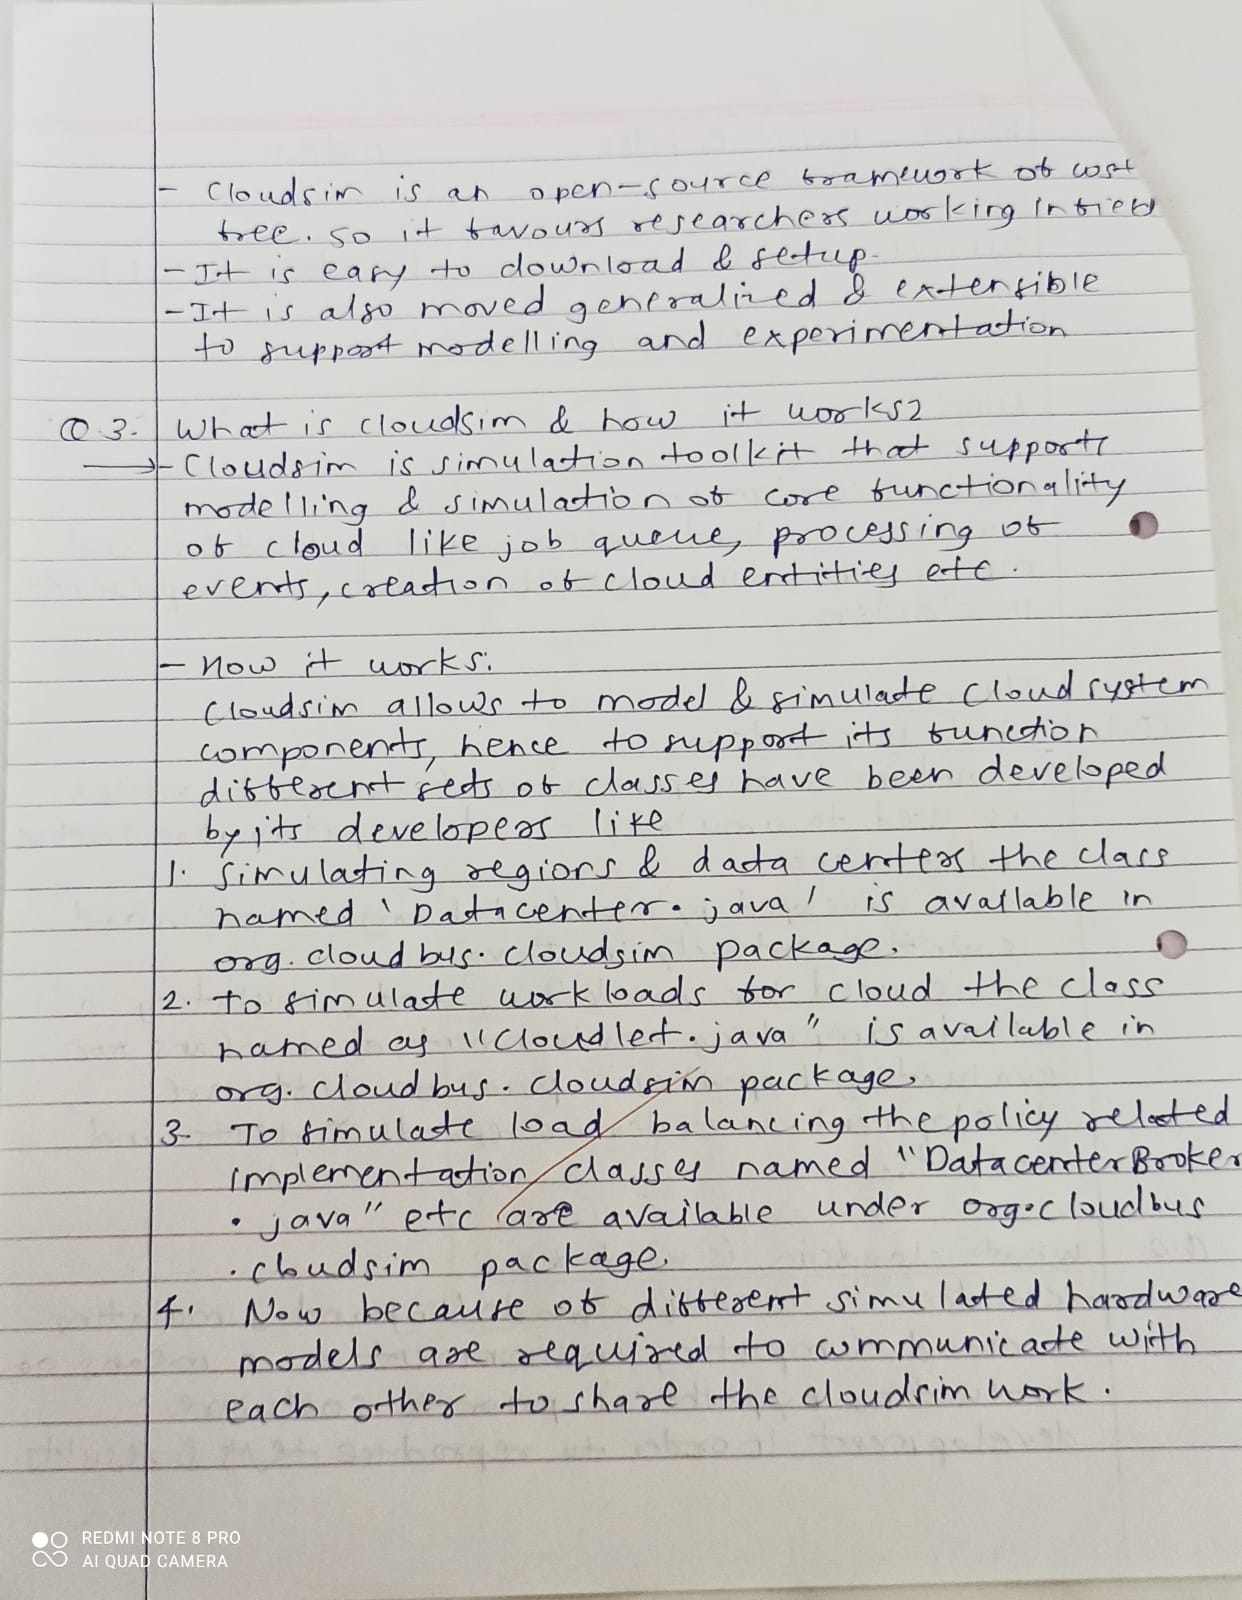 - Cloudsim is an open-source framework of cost
free. so it favours researchers working in field
- It is easy to download & setup.
- It is also moved generalized & extensible
to support modelling and experimentation
Q.3. What is cloudsim & how it works?
→ - Cloudsim is simulation toolkit that supports
modelling & simulation of core functionality
of cloud like job queue, processing of
events, creation of cloud entities etc.
- How it works:
Cloudsim allows to model & simulate cloud system
components, hence to support its function
different sets of classes have been developed
by its developers like
1. Simulating regions & data centers the class
named 'Datacenter.java' is available in
org.cloudbus.cloudsim package.
2. To simulate workloads for cloud the class
named as "Cloudlet.java" is available in
org.cloudbus.cloudsim package.
3. To simulate load balancing the policy related
implementation classes named "DatacenterBroker
.java" etc are available under org.cloudbus
.cloudsim package.
4. Now because of different simulated hardware
models are required to communicate with
each other to share the cloudsim work.
REDMI NOTE 8 PRO
AI QUAD CAMERA